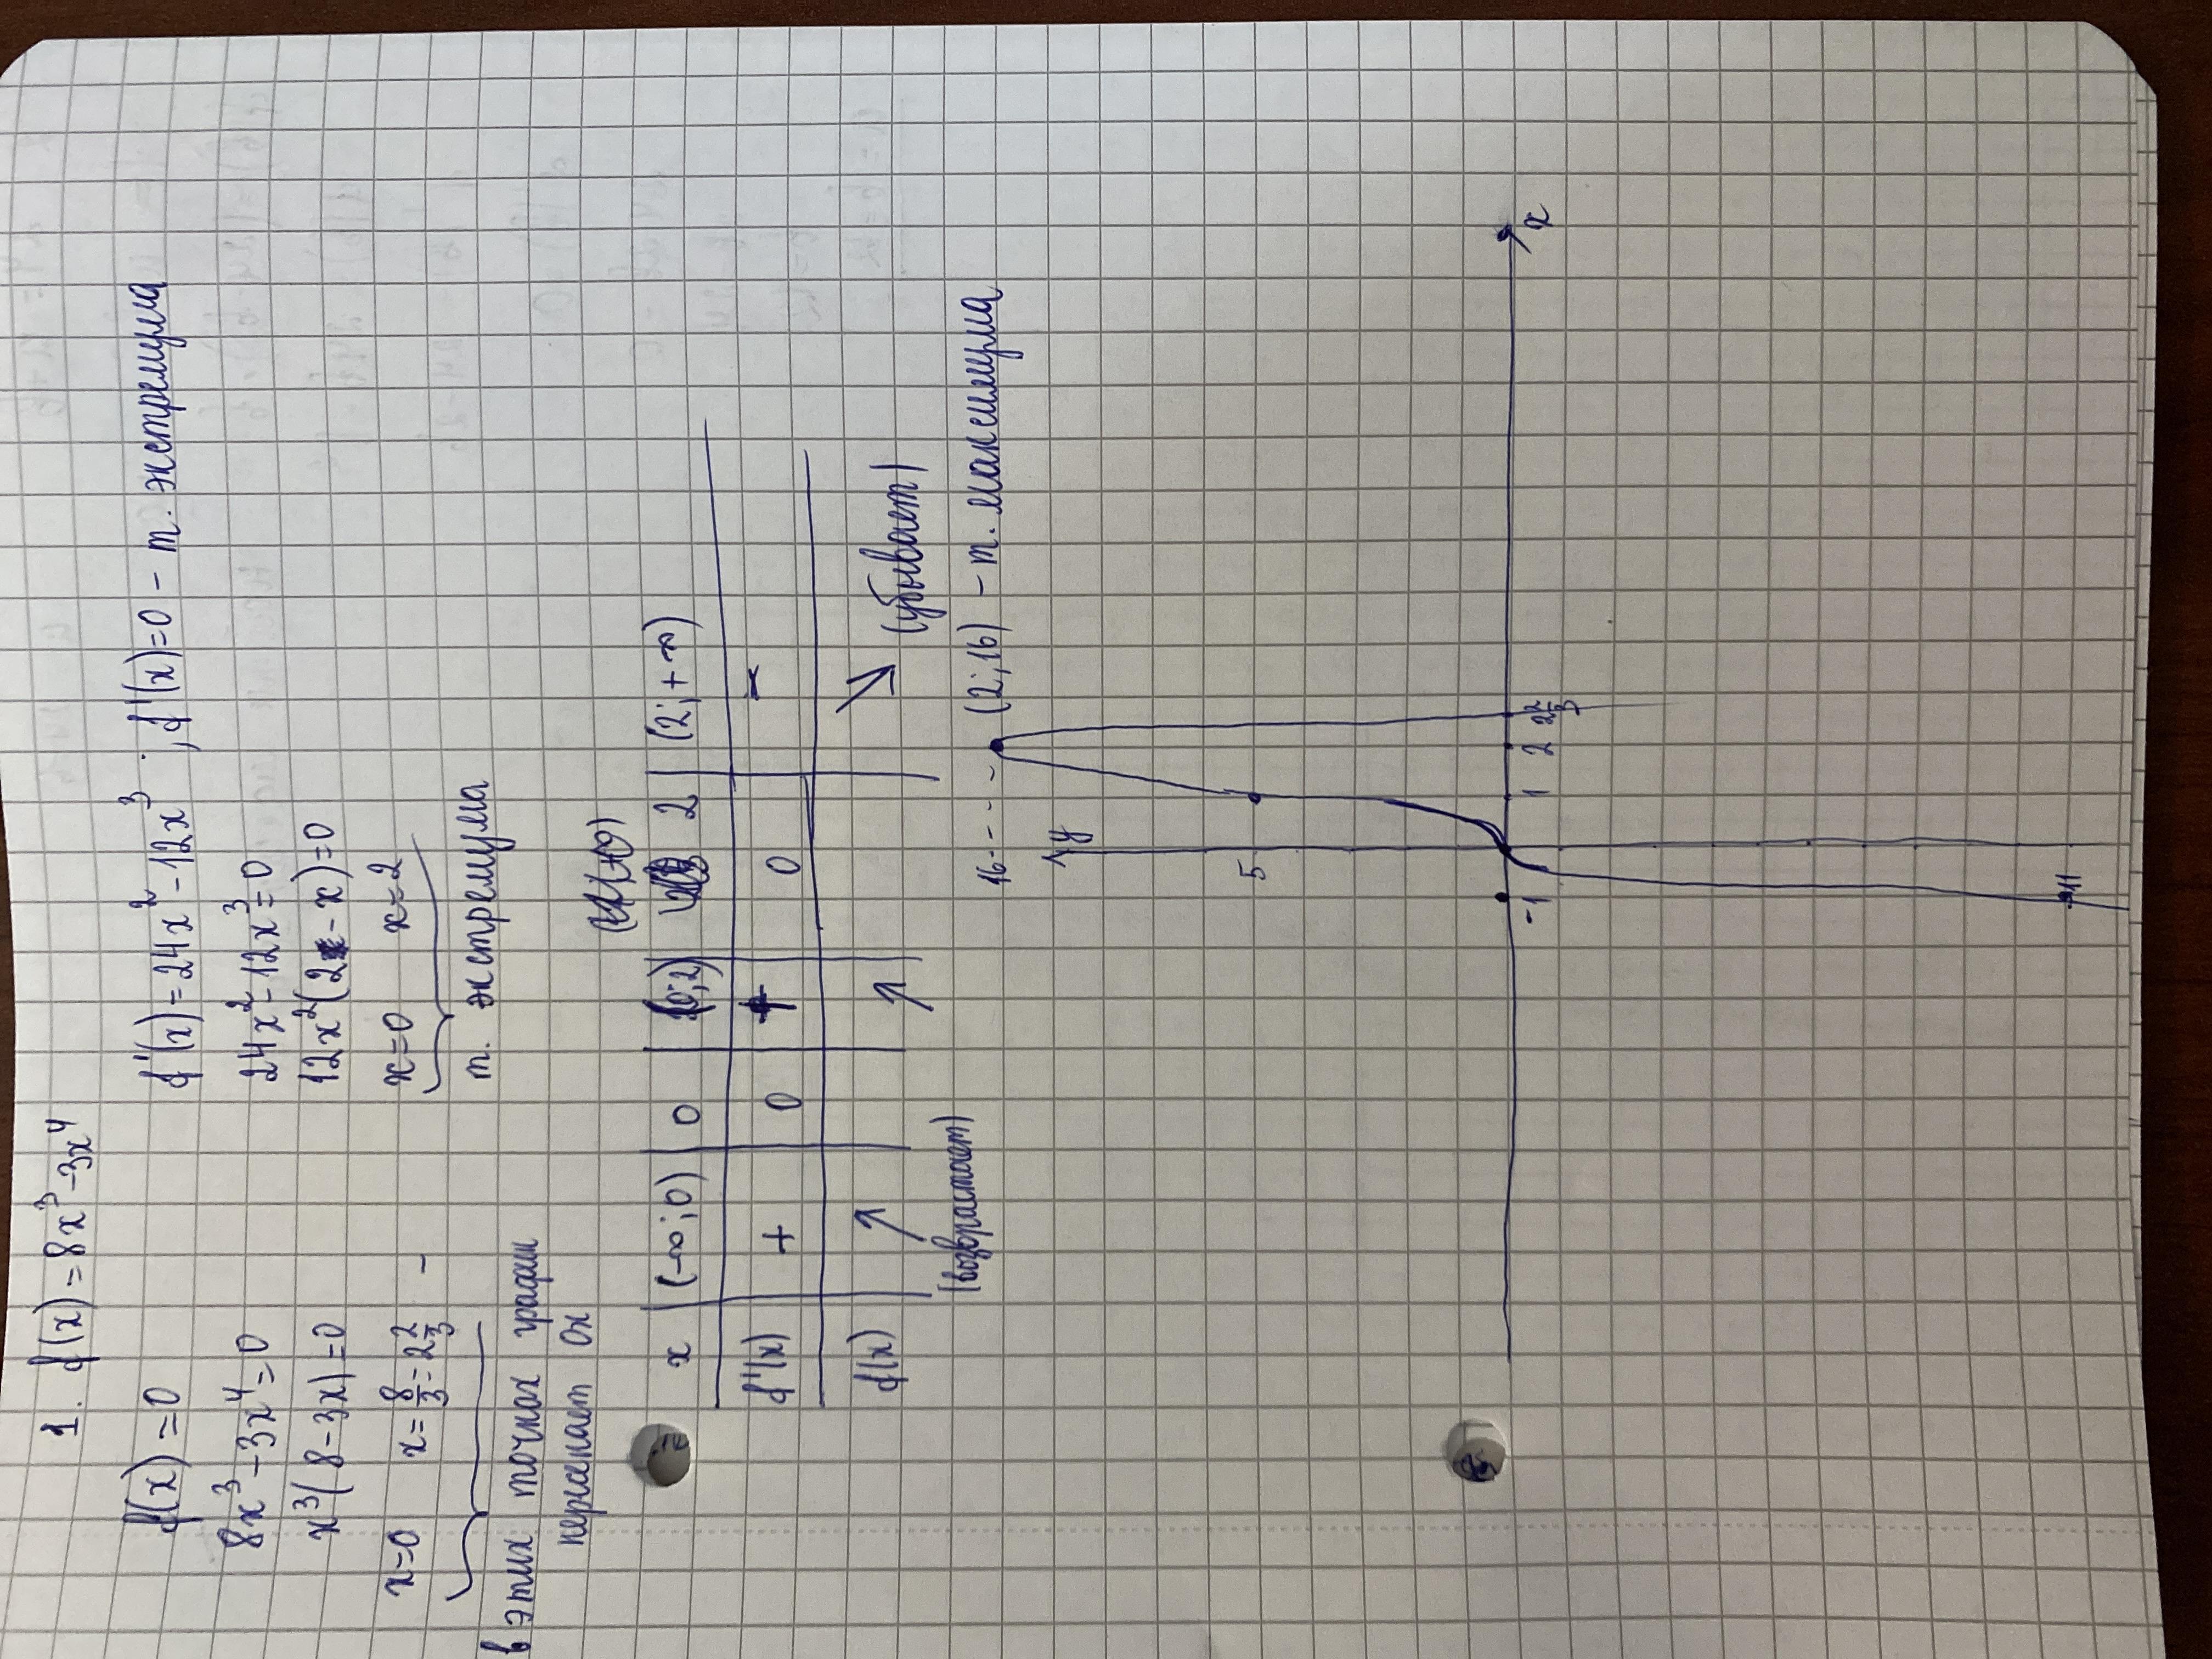 1. f(x) = 8x³ - 3x⁴
f(x) = 0
8x³ - 3x⁴ = 0
x³(8 - 3x) = 0
x=0 x = 8/3 = 2 2/3 -
в этих точках график
пересекает Ox
f'(x) = 24x² - 12x³ ; f'(x)=0 - т. экстремума
24x² - 12x³ = 0
12x²(2 - x) = 0
x=0 x=2
т. экстремума
x (-∞; 0) 0 (0; 2) 2 (2; +∞)
f'(x) + 0 + 0 -
f(x) ↗ ↗ ↘
(возврастает) (убывает)
16 (2; 16) - т. максимума
y
5
-1 1 2 2 2/3 x
-11